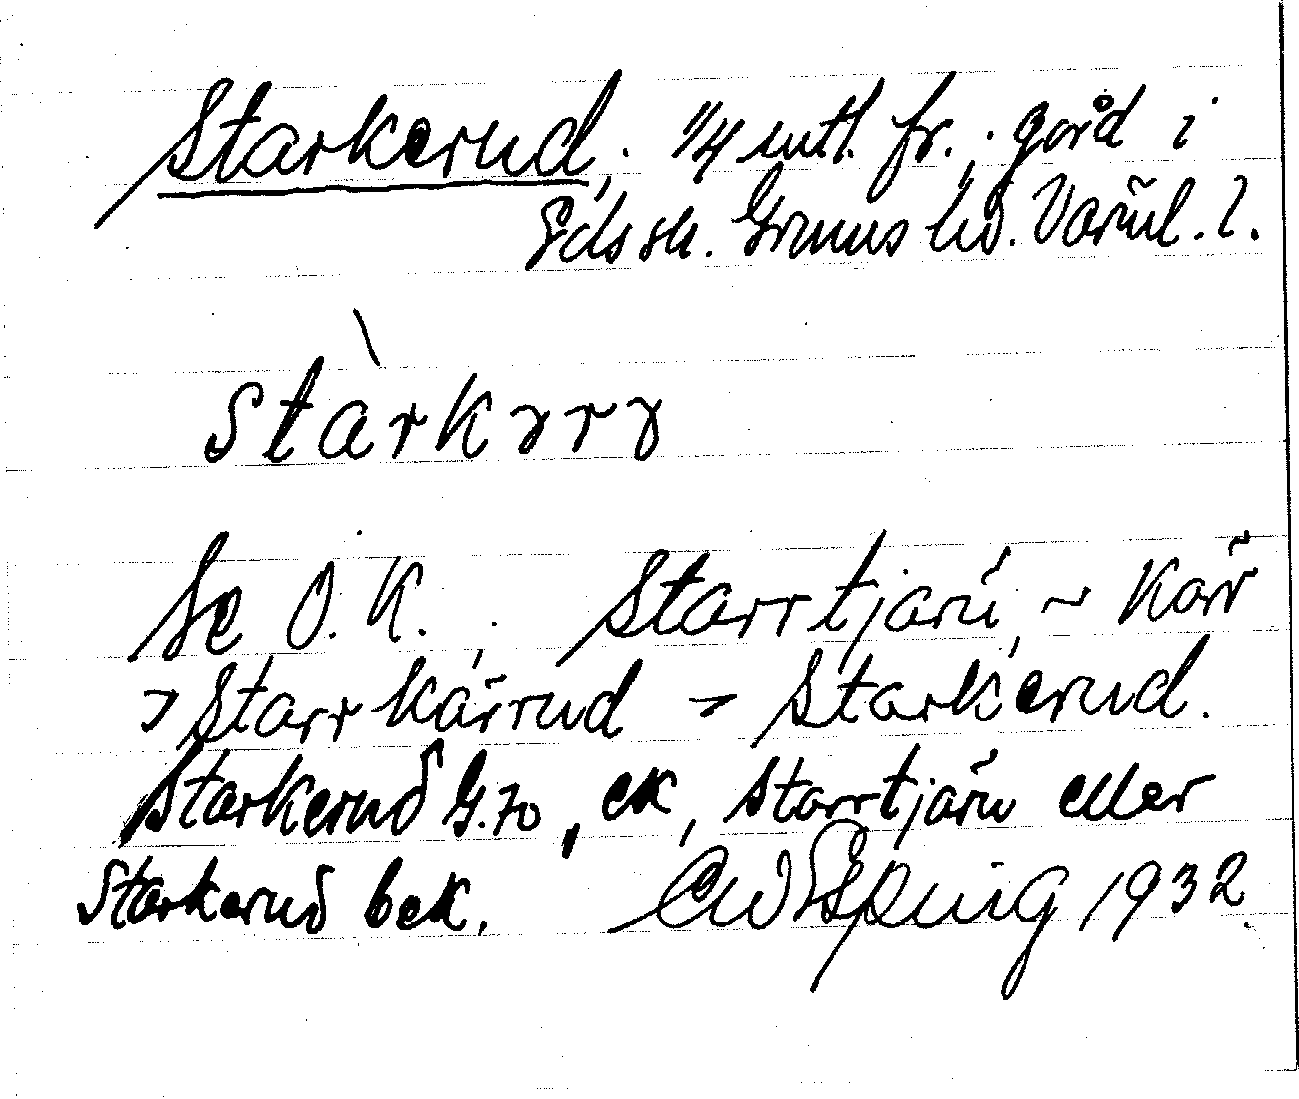 Starkerud, 1/4 mtl. fr., gård i
Eds sk. Grums hd. Värml. l.
stàrkɤrɤ
Se O.K., Starrtjärn, ~ Kärr
> Starrkärrud > Starkerud.
Starkerud G.70, ek, Starrtjärn eller
Starkerud bek. 1932